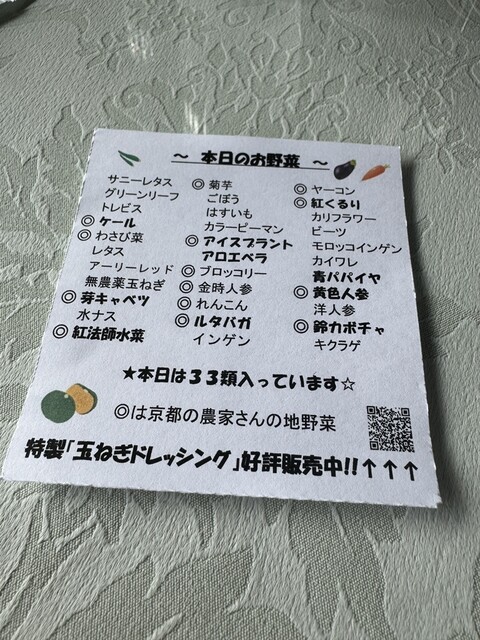 ～ 本日のお野菜 ～
サニーレタス
グリーンリーフ
トレビス
◎ ケール
◎ わさび菜
レタス
アーリーレッド
無農薬玉ねぎ
◎ 芽キャベツ
水ナス
◎ 紅法師水菜
◎ 菊芋
ごぼう
はすいも
カラーピーマン
◎ アイスプラント
アロエベラ
◎ ブロッコリー
◎ 金時人参
◎ れんこん
◎ ルタバガ
インゲン
◎ ヤーコン
◎ 紅くるり
カリフラワー
ビーツ
モロッコインゲン
カイワレ
青パパイヤ
◎ 黄色人参
洋人参
◎ 鈴カボチャ
キクラゲ
★本日は３３類入っています☆
◎は京都の農家さんの地野菜
特製「玉ねぎドレッシング」好評販売中!!↑↑↑